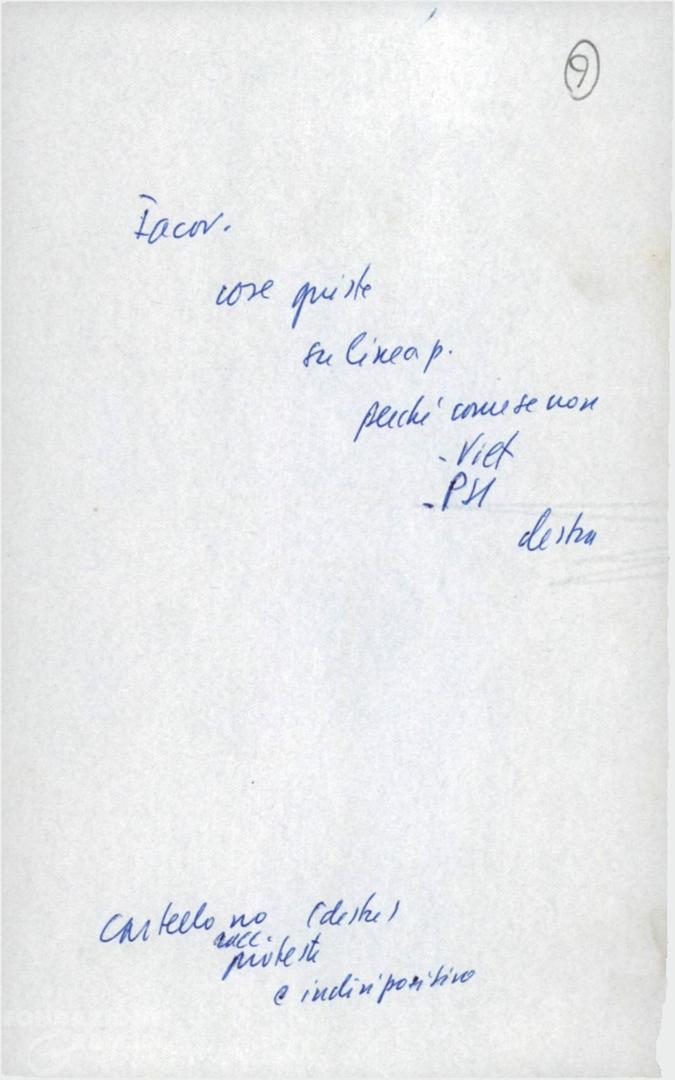 9
Iacov.
cose giuste
su linea p.
perché come se non
- Viet
- PSI
destra
Castello no (destre)
acc.
proteste
e indiri positivo